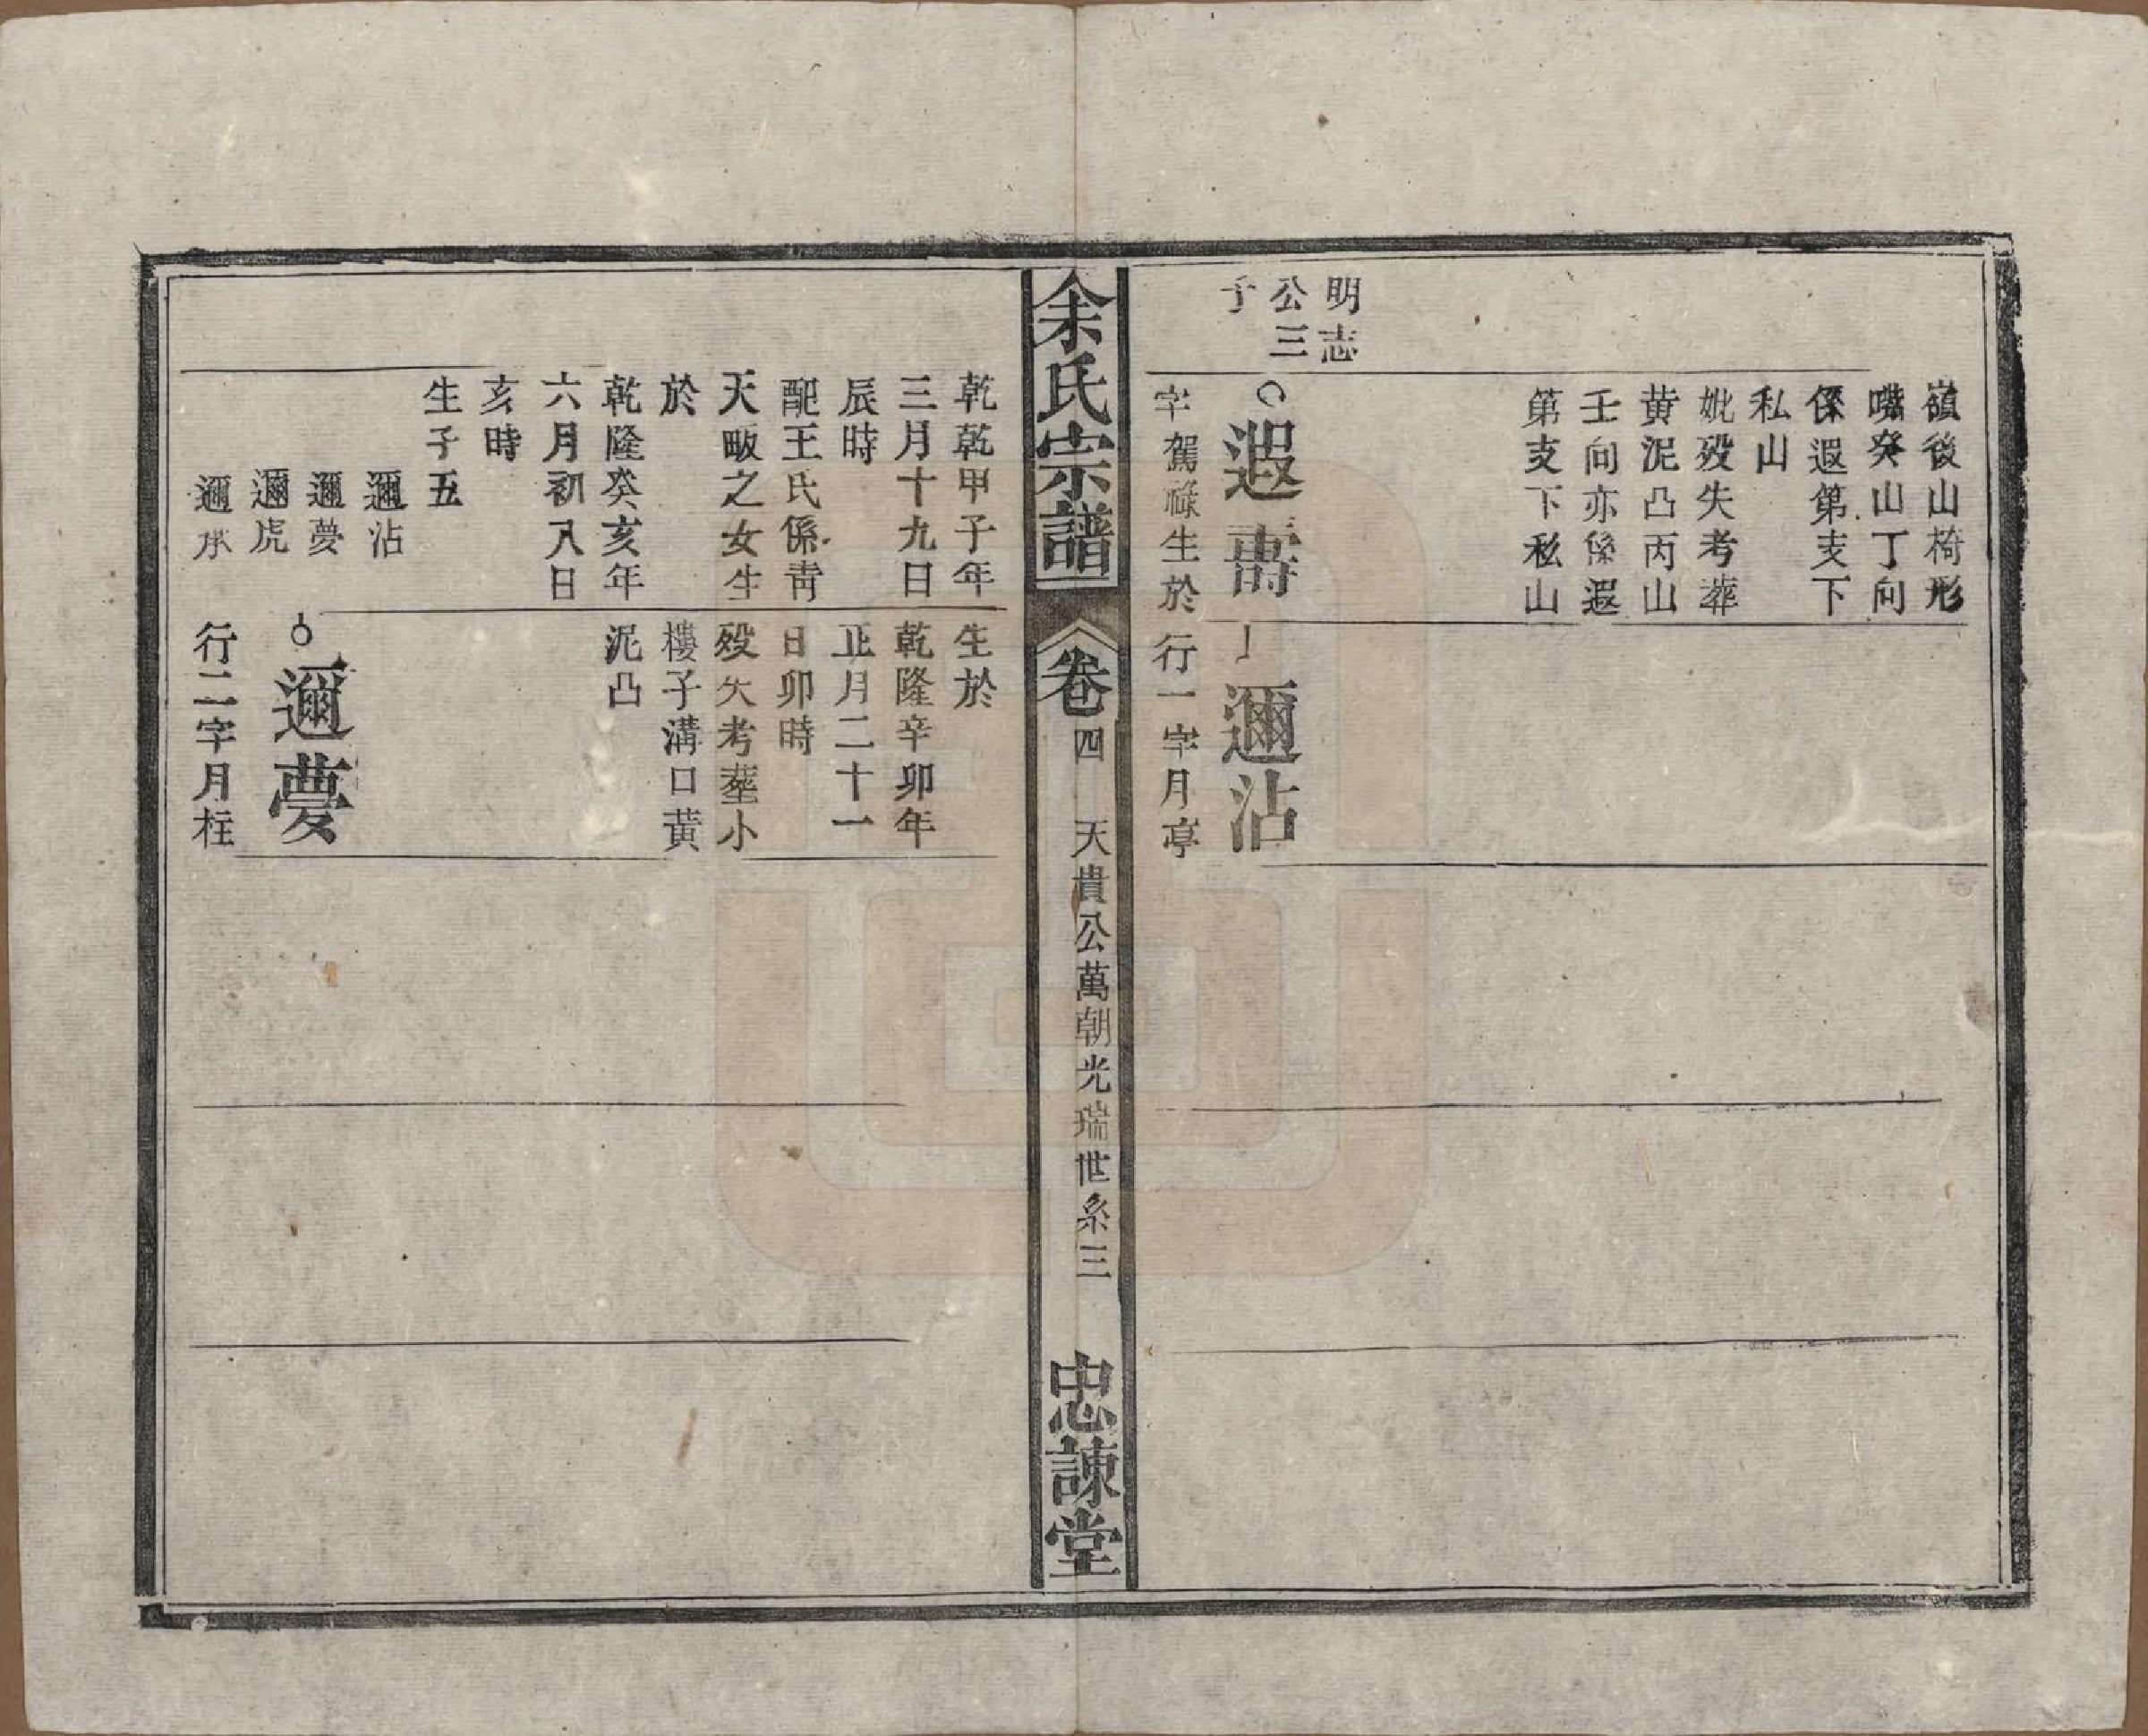 嶺後山椅形
嘴癸山丁向
係遐第支下
私山
妣歿失考葬
黄泥凸丙山
壬向亦係遐
第支下私山
明志
公三
子
遐壽
字駕祿生於
邇沾
行一字月亭
余氏宗譜
卷四
天貴公萬朝光瑞世系三
忠諫堂
乾乾甲子年
三月十九日
辰時
配王氏係青
天畈之女生
於
乾隆癸亥年
六月初八日
亥時
生子五
邇沾
邇夢
邇虎
邇承
生於
乾隆辛卯年
正月二十一
日卯時
歿失考塟小
樓子溝口黃
泥凸
邇夢
行二字月柱